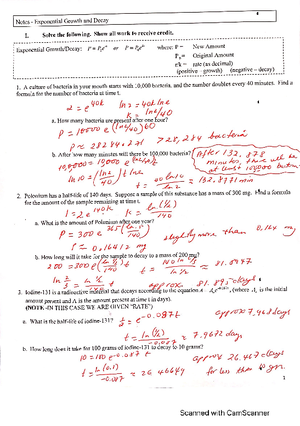 Notes - Exponential Growth and Decay
I. Solve the following. Show all work to receive credit.
Exponential Growth/Decay: or where: P = New Amount
P₀ = Original Amount
r/k = rate (as decimal)
(positive – growth) (negative – decay)
1. A culture of bacteria in your mouth starts with 10,000 bacteria, and the number doubles every 40 minutes. Find a
formula for the number of bacteria at time t.
2 = e^40k ln2 = 40k lne
k = ln2/40
a. How many bacteria are present after one hour?
P = 10000 e^(ln2/40)60
P ≈ 28284.271 ≈ 28,284 bacteria
b. After how many minutes will there be 100,000 bacteria?
After 132.878
minutes, there will be
at least 100000 bacteria
100,000 = 10000 e^(ln2/40)t
ln10 = (ln2/40)t lne
t = 40 ln10/ln2 = 132.8771 min
2. Polonium has a half-life of 140 days. Suppose a sample of this substance has a mass of 300 mg. Find a formula
for the amount of the sample remaining at time t.
k = ln(½)/140
a. What is the amount of Polonium after one year?
slightly more than 0.164 mg
b. How long will it take for the sample to decay to a mass of 200 mg?
200 = 300 e
approx
3. Iodine-131 is a radioactive material that decays according to the equation, (where A₀ is the initial
amount present and A is the amount present at time t in days).
(NOTE -IN THIS CASE WE ARE GIVEN "RATE")
approx 7.967 days
a. What is the half-life of iodine-131? ½ = e^-0.087t
t = ln(½)/-0.087 = 7.9672 days
b. How long does it take for 100 grams of iodine-131 to decay to 10 grams?
10 = 100 e^-0.087t
approx 26.467 days
t = ln(0.1)/-0.087 = 26.46649
for less than 10 gm.
1
Scanned with CamScanner